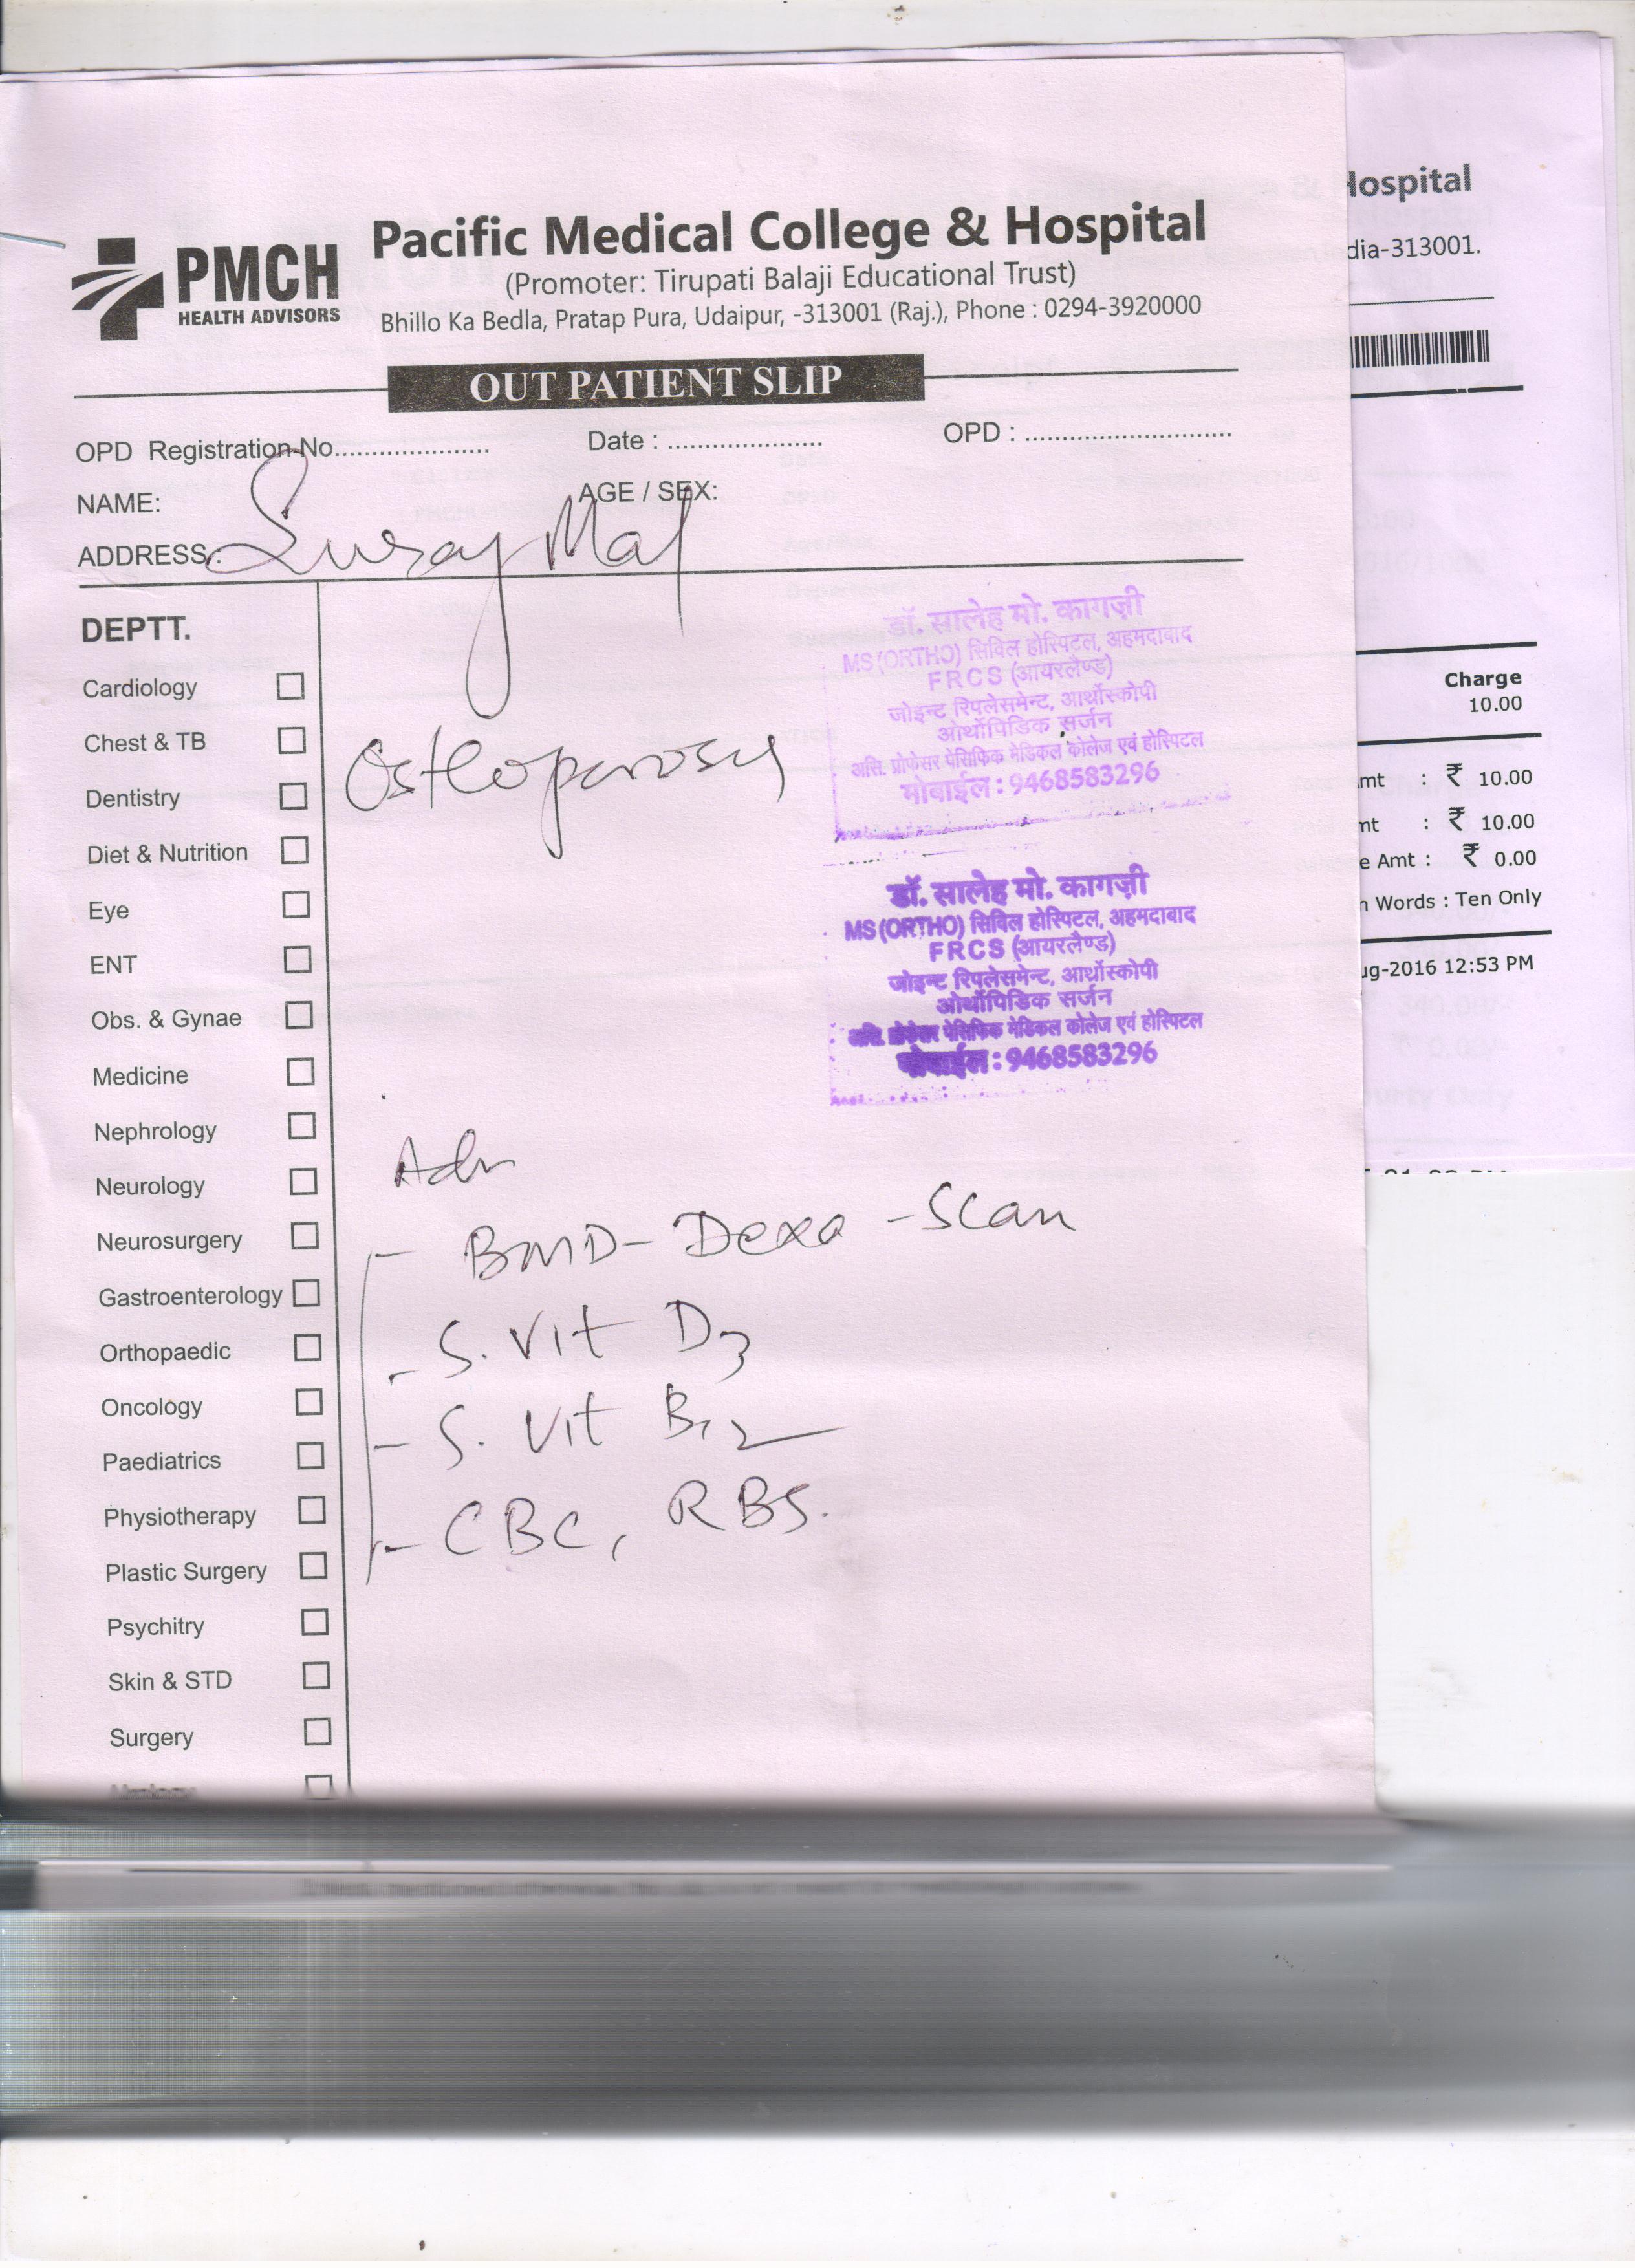 Pacific Medical College & Hospital
PMCH
HEALTH ADVISORS
(Promoter: Tirupati Balaji Educational Trust)
Bhillo Ka Bedla, Pratap Pura, Udaipur, -313001 (Raj.), Phone : 0294-3920000
OUT PATIENT SLIP
OPD Registration No..................... Date : ..................... OPD : ............................
NAME: AGE / SEX:
Suraj Mal
ADDRESS :
DEPTT.
Cardiology
Chest & TB
Dentistry
Diet & Nutrition
Eye
ENT
Obs. & Gynae
Medicine
Nephrology
Neurology
Neurosurgery
Gastroenterology
Orthopaedic
Oncology
Paediatrics
Physiotherapy
Plastic Surgery
Psychitry
Skin & STD
Surgery
डॉ. सालेह मो. कागज़ी
MS (ORTHO) सिविल होस्पिटल, अहमदाबाद
FRCS (आयरलैण्ड)
जोइन्ट रिपलेसमेन्ट, आर्थोस्कोपी
ओर्थोपिडिक सर्जन
असि. प्रोफेसर पेसिफिक मेडिकल कोलेज एवं होस्पिटल
मोबाईल : 9468583296
Osteoporosis
डॉ. सालेह मो. कागज़ी
MS (ORTHO) सिविल होस्पिटल, अहमदाबाद
FRCS (आयरलैण्ड)
जोइन्ट रिपलेसमेन्ट, आर्थोस्कोपी
ओर्थोपिडिक सर्जन
असि. प्रोफेसर पेसिफिक मेडिकल कोलेज एवं होस्पिटल
मोबाईल : 9468583296
Adv
- BMD - Dexa - Scan
- S. Vit D3
- S. Vit B12
- CBC, RBS.
Hospital
dia-313001.
Charge
10.00
mt : ₹ 10.00
nt : ₹ 10.00
e Amt : ₹ 0.00
n Words : Ten Only
ug-2016 12:53 PM